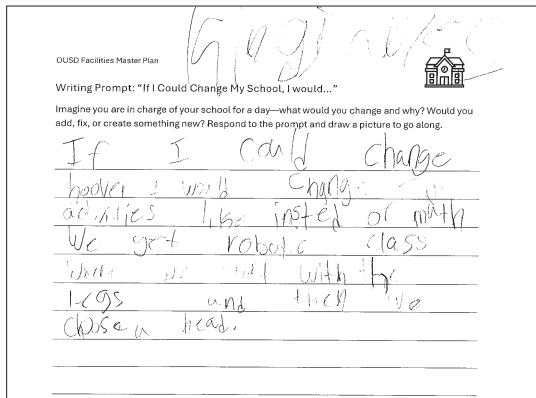 OUSD Facilities Master Plan
Writing Prompt: “If I Could Change My School, I would...”
Imagine you are in charge of your school for a day—what would you change and why? Would you
add, fix, or create something new? Respond to the prompt and draw a picture to go along.
If I Could change
hoover I would Change
activities like insted of math
We get robotic class
with the
legs and then we
choose a head.